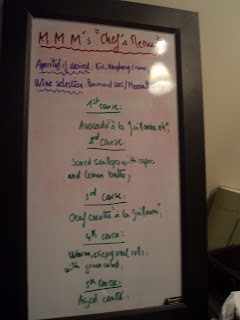 M.M.M's "Chef's Menu"
Aperitif if desired: Kir, Raspberry
Wine selection:
1st course:
Avocado à la "Guillaume
2nd course
Seared scallops with capers
and lemon butter;
3rd course:
Oeuf cocotte "à la Guillaume";
4th course:
Warm, crispy veal rolls,
with green salad;
5th course:
Aged comté;